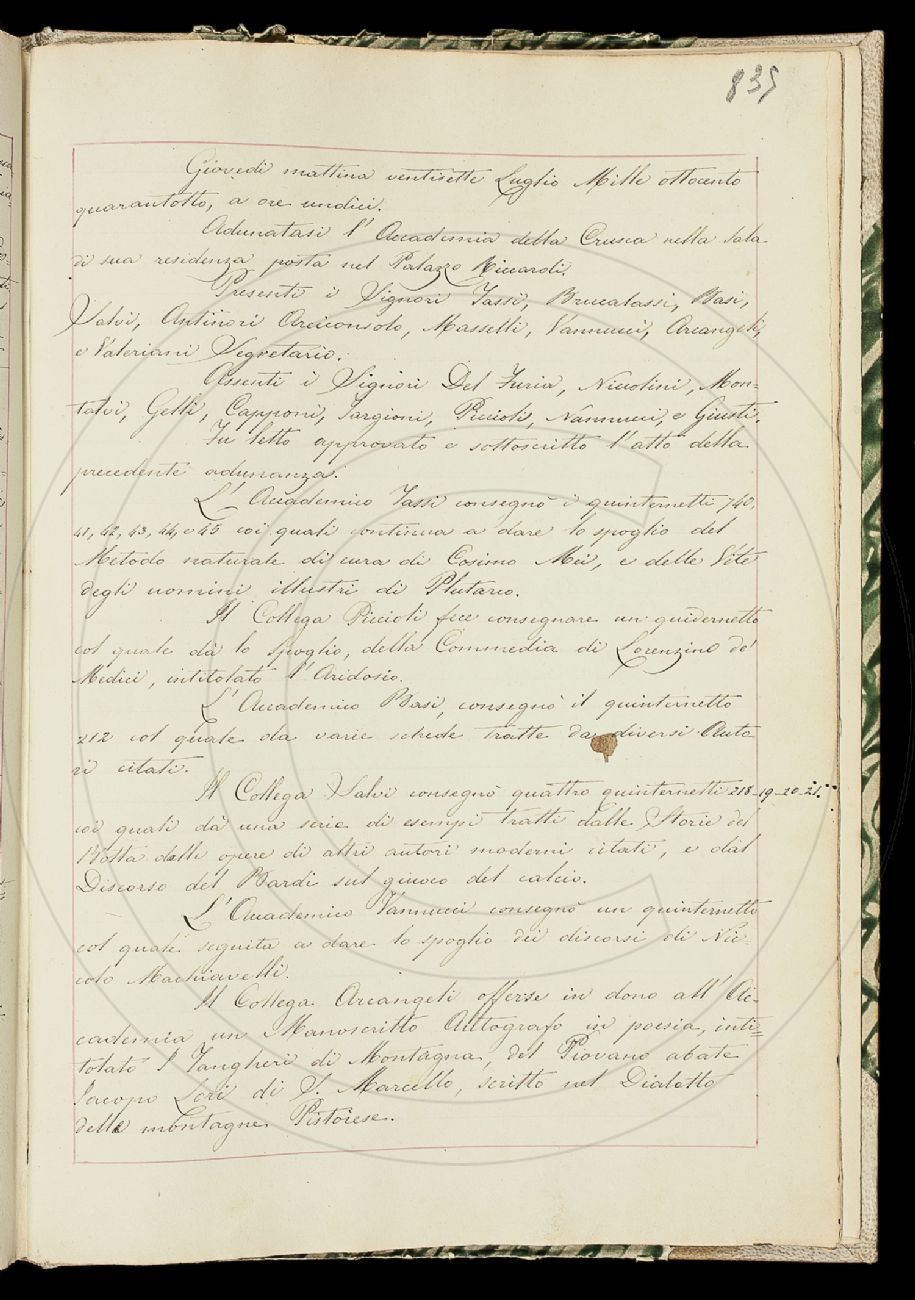 835
Giovedì mattina ventisette Luglio Mille ottocento
quarantotto, a ore undici.
Adunatasi l'Accademia della Crusca nella Sala
di sua residenza posta nel Palazzo Riccardi.
Presenti i Signori Tassi, Brucalassi, Basi,
Salvi, Antinori Arciconsolo, Masselli, Vannucci, Arcangeli,
e Valeriani Segretario.
Assenti i Signori Del Furia, Niccolini, Mon-
talvi, Gelli, Capponi, Targioni, Piccioli, Nannucci, e Giusti.
Fu letto approvato e sottoscritto l'atto della
precedente adunanza.
L'Accademico Tassi consegnò i quinternetti 740,
41, 42, 43, 44, e 45 coi quali continua a dare lo spoglio del
Metodo naturale di cura di Cosimo Mei, e delle Vite
degli uomini illustri di Plutarco.
Il Collega Piccioli fece consegnare un quidernetto
col quale dà lo Spoglio, della Commedia di Lorenzino de'
Medici, intitolato l'Aridosio.
L'Accademico Basi, consegnò il quinternetto
212 col quale da varie schede tratte da diversi Auto
ri citati.
Il Collega Salvi consegnò quattro quinternetti 218-19-20-21.
coi quali dà una serie di esempi tratti dalle Storie del
Botta dalle opere di altri autori moderni citati, e dal
Discorso del Bardi sul giuoco del calcio.
L'Accademico Vannucci consegnò un quinternetto
col quale seguita a dare lo spoglio dei discorsi di Nic-
colo Machiavelli.
Il Collega Arcangeli offerse in dono all'Ac-
cademia un Manoscritto Autografo in poesia, inti=
tolato I Tangheri di Montagna, del Piovano abate
Iacopo Lori di S. Marcello, scritto nel Dialetto
delle montagne Pistoiese.